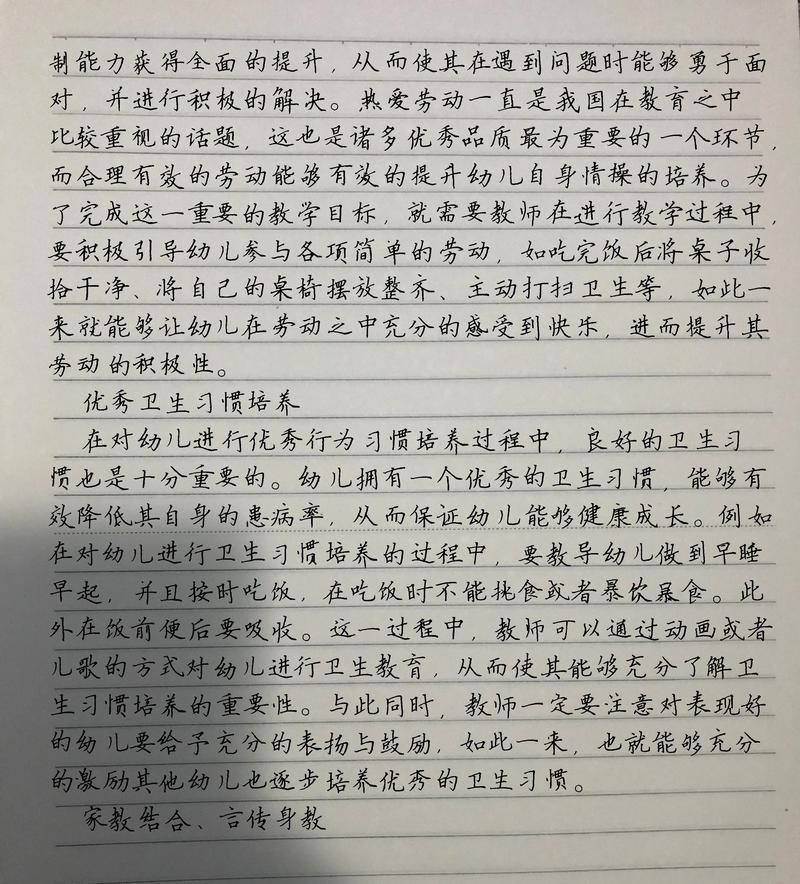 制能力获得全面的提升，从而使其在遇到问题时能够勇于面
对，并进行积极的解决。热爱劳动一直是我国在教育之中
比较重视的话题，这也是诸多优秀品质最为重要的一个环节，
而合理有效的劳动能够有效的提升幼儿自身情操的培养。为
了完成这一重要的教学目标，就需要教师在进行教学过程中，
要积极引导幼儿参与各项简单的劳动，如吃完饭后将桌子收
拾干净、将自己的桌椅摆放整齐、主动打扫卫生等，如此一
来就能够让幼儿在劳动之中充分的感受到快乐，进而提升其
劳动的积极性。
优秀卫生习惯培养
在对幼儿进行优秀行为习惯培养过程中，良好的卫生习
惯也是十分重要的。幼儿拥有一个优秀的卫生习惯，能够有
效降低其自身的患病率，从而保证幼儿能够健康成长。例如
在对幼儿进行卫生习惯培养的过程中，要教导幼儿做到早睡
早起，并且按时吃饭，在吃饭时不能挑食或者暴饮暴食。此
外在饭前便后要吸收。这一过程中，教师可以通过动画或者
儿歌的方式对幼儿进行卫生教育，从而使其能够充分了解卫
生习惯培养的重要性。与此同时，教师一定要注意对表现好
的幼儿要给予充分的表扬与鼓励，如此一来，也就能够充分
的激励其他幼儿也逐步培养优秀的卫生习惯。
家教结合、言传身教